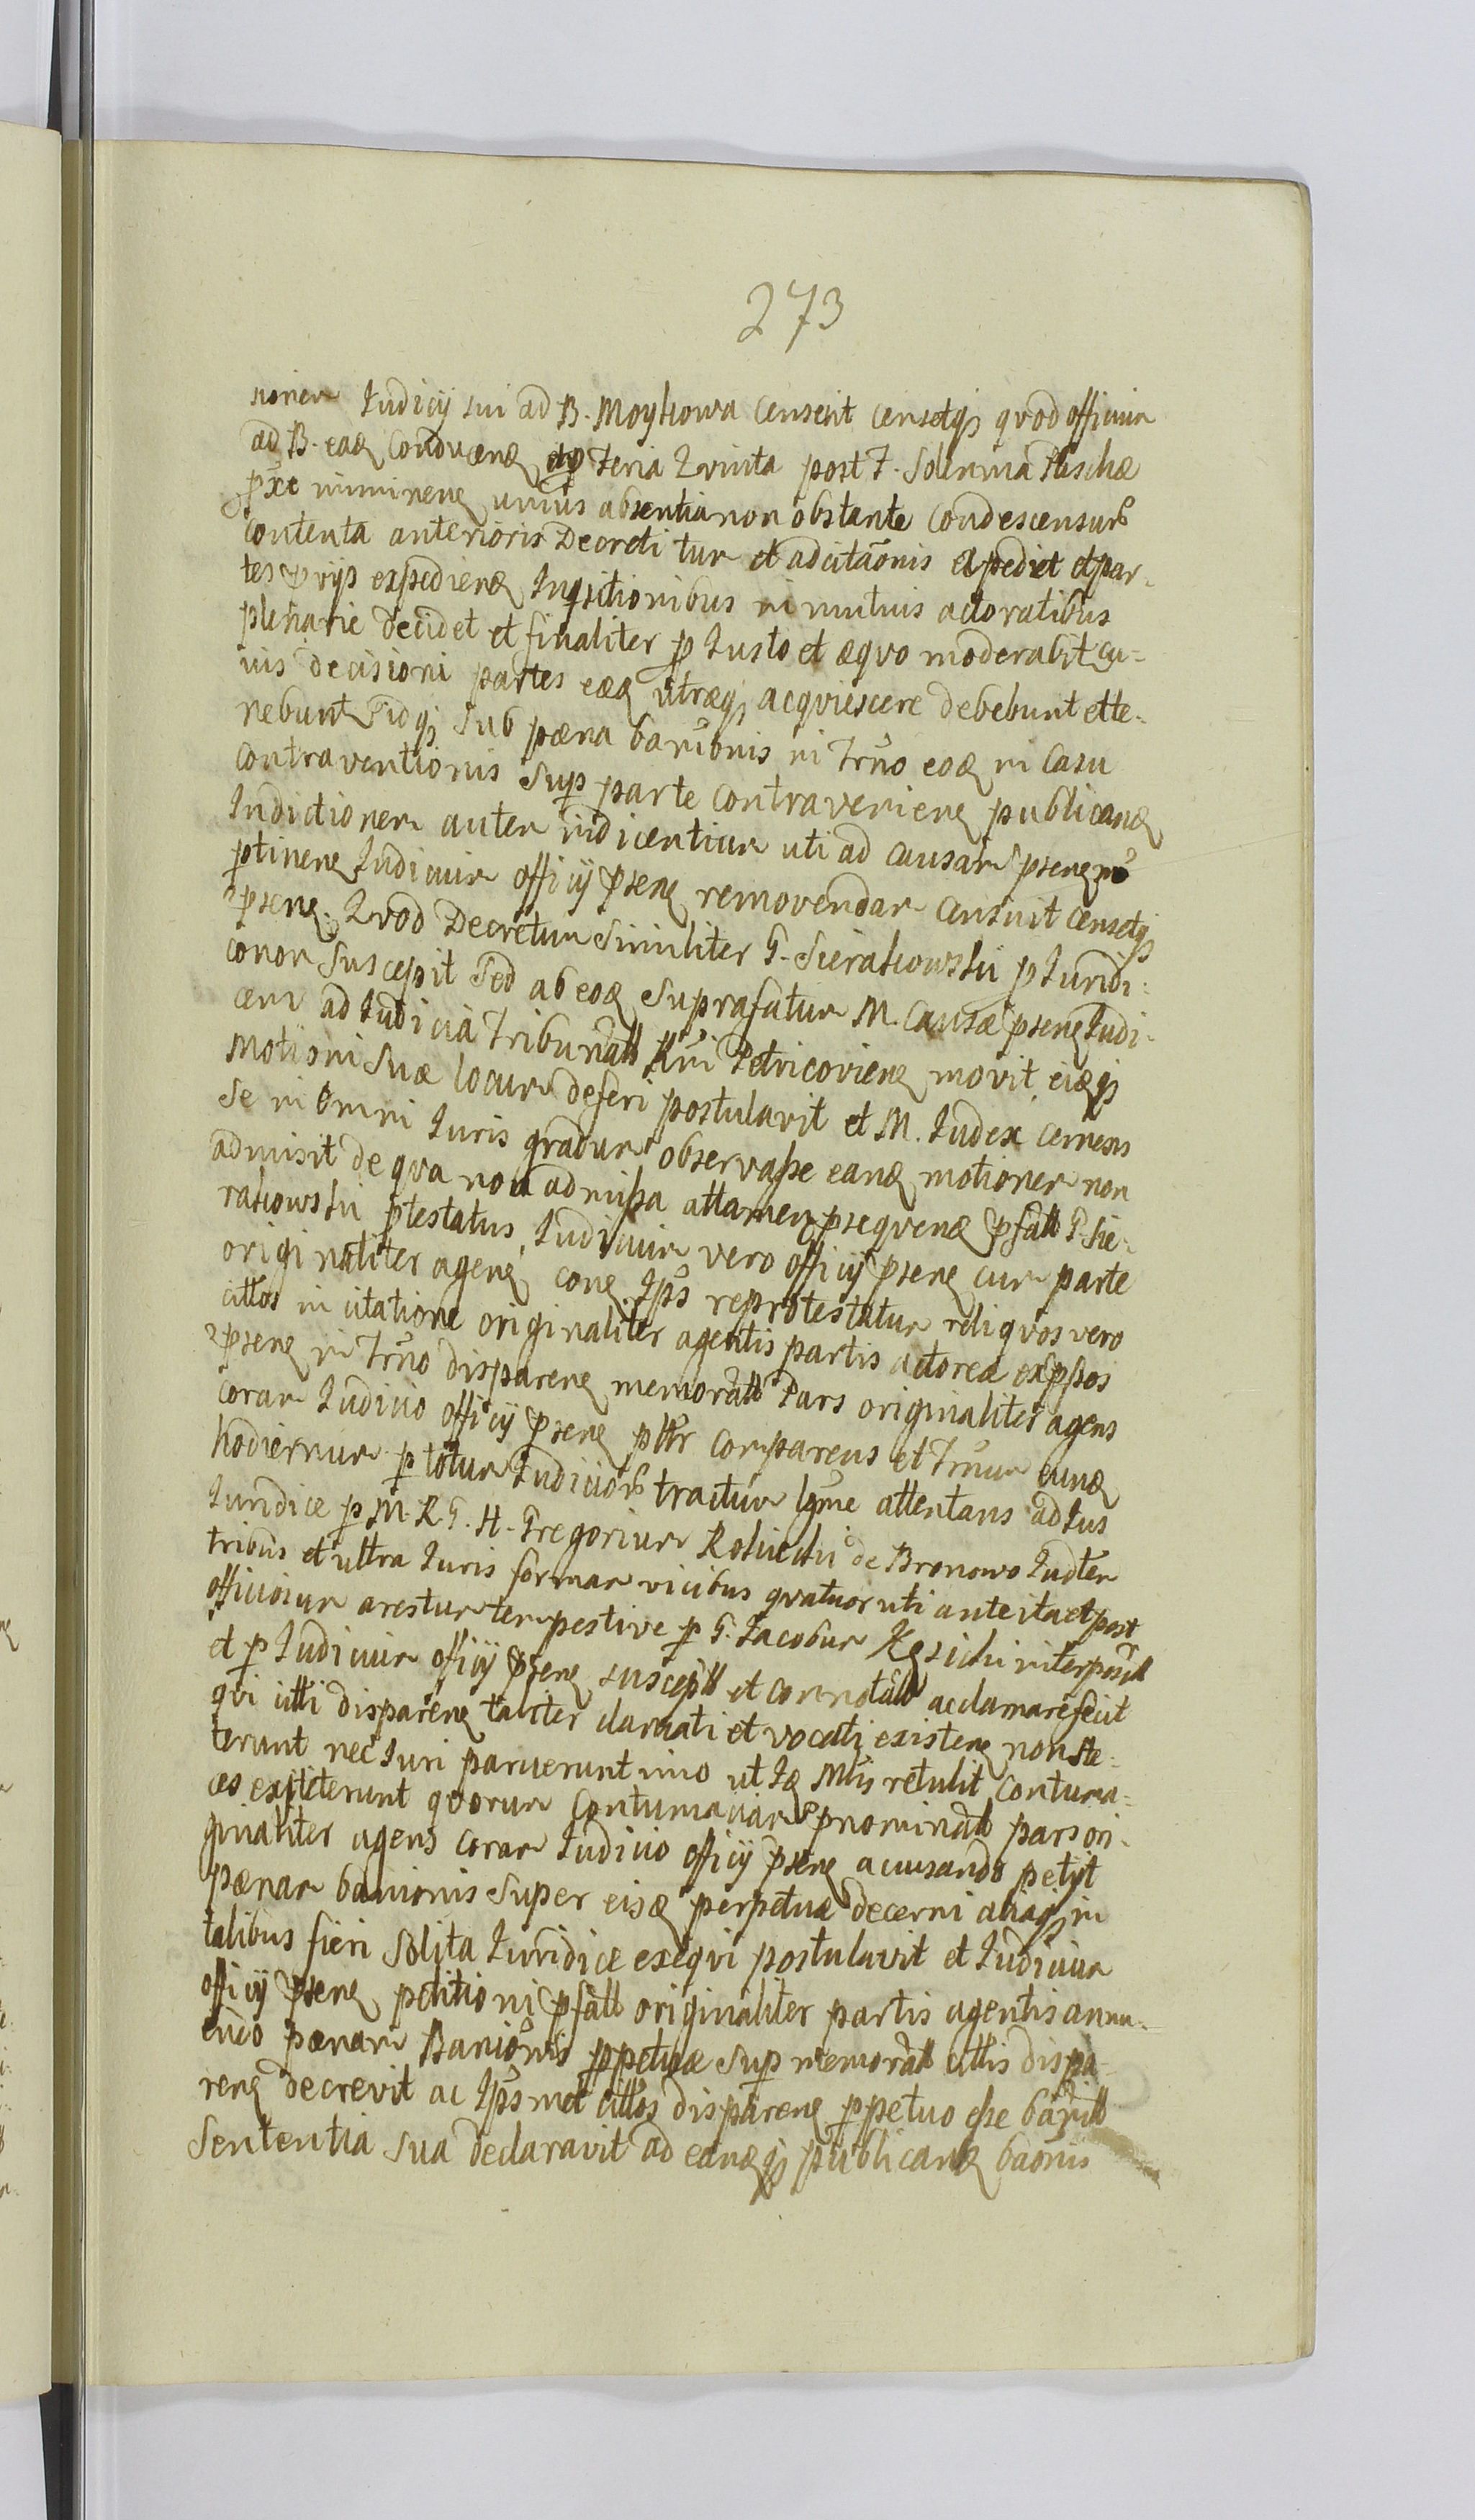 273
sionem Iudicij sui ad B. Moykowa censuit censetq; qvod officium
ad B. eaz Conducenz Feria Qvinta post F. Solennia Paschæ
pxe imminenz unius absentia non obstante condescensur
contenta anterioris Decreti tum et adcitaonis expediet et par-
tes expedienz Inqsitionibus in mutuis actoratibus
plenarie decidet et finaliter p Iusto et æqvo moderabit cu-
ius decisioni partes eæz utræq; acqviescere debebunt et te-
nebuntr idq; sub pæna banionis in Trno eoz in casu
contraventionis Sup parte contravenienz publicanz
Indictionem autem indicentium uti ad causam psenz
ptinenz Iudicium officij psenz removendam censuit censetq;
psenz. Qvod Decretum Similiter G. Sierakowski p Iuridi-
conon suscepit Sed ab eoz suprafatum M. Causæ psenz Iudi-
cem ad Iudicia Tribunall Rni Petricovienz movit eiæq;
Motioni Suæ locum deferi postulavit et M. Iudex cernens
se in omni Iuris gradum observasse eanz motionem non
admisit de qva non admissa attamen pseqvenz pfall G. Sie-
rakowski ptestatus, Iudicium vero officij psenz cum parte
originaliter agenz conz Ips reprotestatur reliqvos vero
cittos in citatione originaliter agentis partis actoreæ expssos
psenz in Trno disparenz memorall Pars originaliter agens
coram Iudicio officij psenz pltr comparens et Trnum eunz
hodiernum p totum Iudicior tractum lgme attentans ad Ius
Iuridice p M. R. G. H. Gregorium Rokicki de Bronowo Iudtem
tribus et ultra Iuris formam vicibus qvatuor uti ante ita et post
officioium arestum tempestive p G. Iacobum Kęsicki interposit
et p Iudicium officij psenz susceptt et connotatt acclamare fecit
qvi citti disparenz taliter clamati et vocati existenz non ste-
terunt nec Iuri paruerunt imo ut Iz Mlis retulit contuma-
ces extiterunt qvorum contumaciam pnominatt pars ori-
ginaliter agens coram Iudicio officij psenz accusando petyt
pænam banionis super eisz perpetuæ decerni aliaq; in
talibus fieri solita Iuridice exeqvi postulavit et Iudicium
officij psenz petitioni pfatt originaliter partis agentis annu-
endo pænam Banionis ppetuæ sup memoratt cittis dispa-
renz decrevit ac Ipsmet cittos disparenz ppetuo esse banitt
Sententia sua declaravit ad eanzq; publicanz baonis